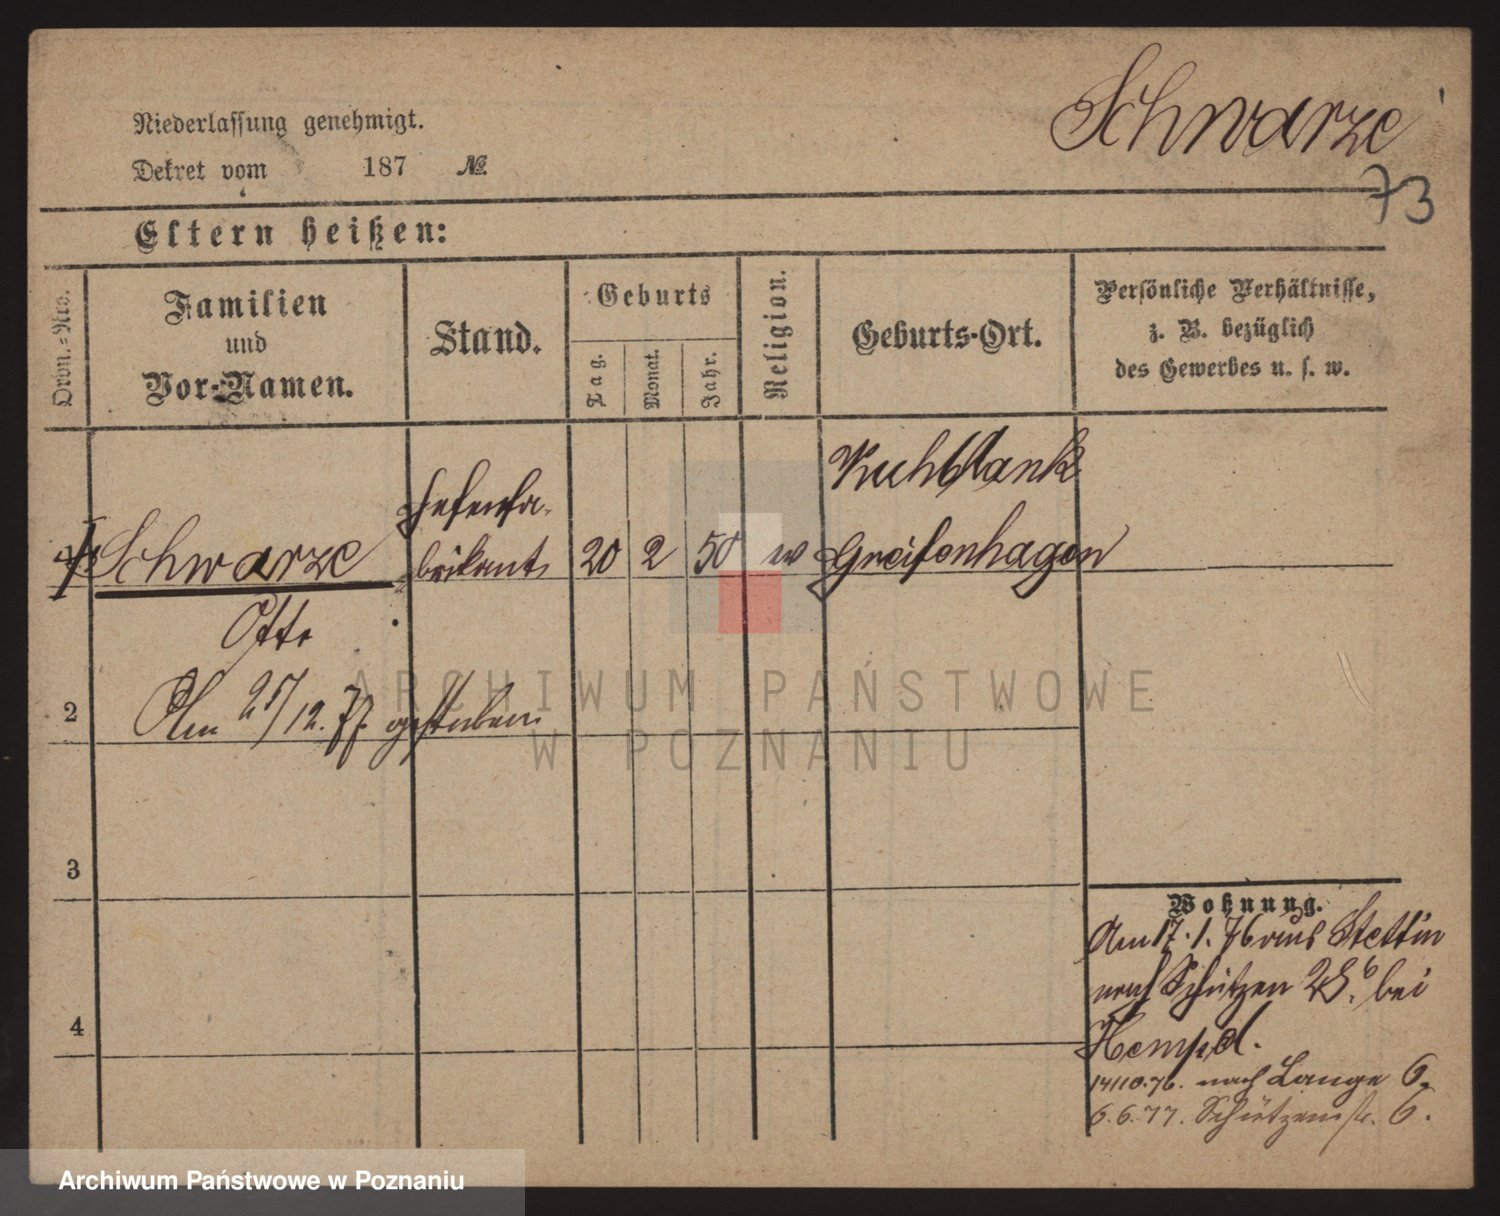 Schwarze
73
Niederlassung genehmigt.
Dekret vom 187 №
Eltern heißen:
Ordn.-Nro.
Familien
und
Vor-Namen.
Stand.
Geburts
Tag.
Monat.
Jahr.
Religion.
Geburts-Ort.
Persönliche Verhältnisse,
z. B. bezüglich
des Gewerbes u. s. w.
1 Schwarze
Otto
Am 25/12.77 gestorben
Hefenfa-
brikant
20 2 50
Greifenhagen
2
3
4
Wohnung.
Am 17.1.76 aus Stettin
nach Schützen bei
14/10.76. nach Lange 6.
6.6.77. Schützenstr. 6.
ARCHIWUM PAŃSTWOWE
W POZNANIU
Archiwum Państwowe w Poznaniu